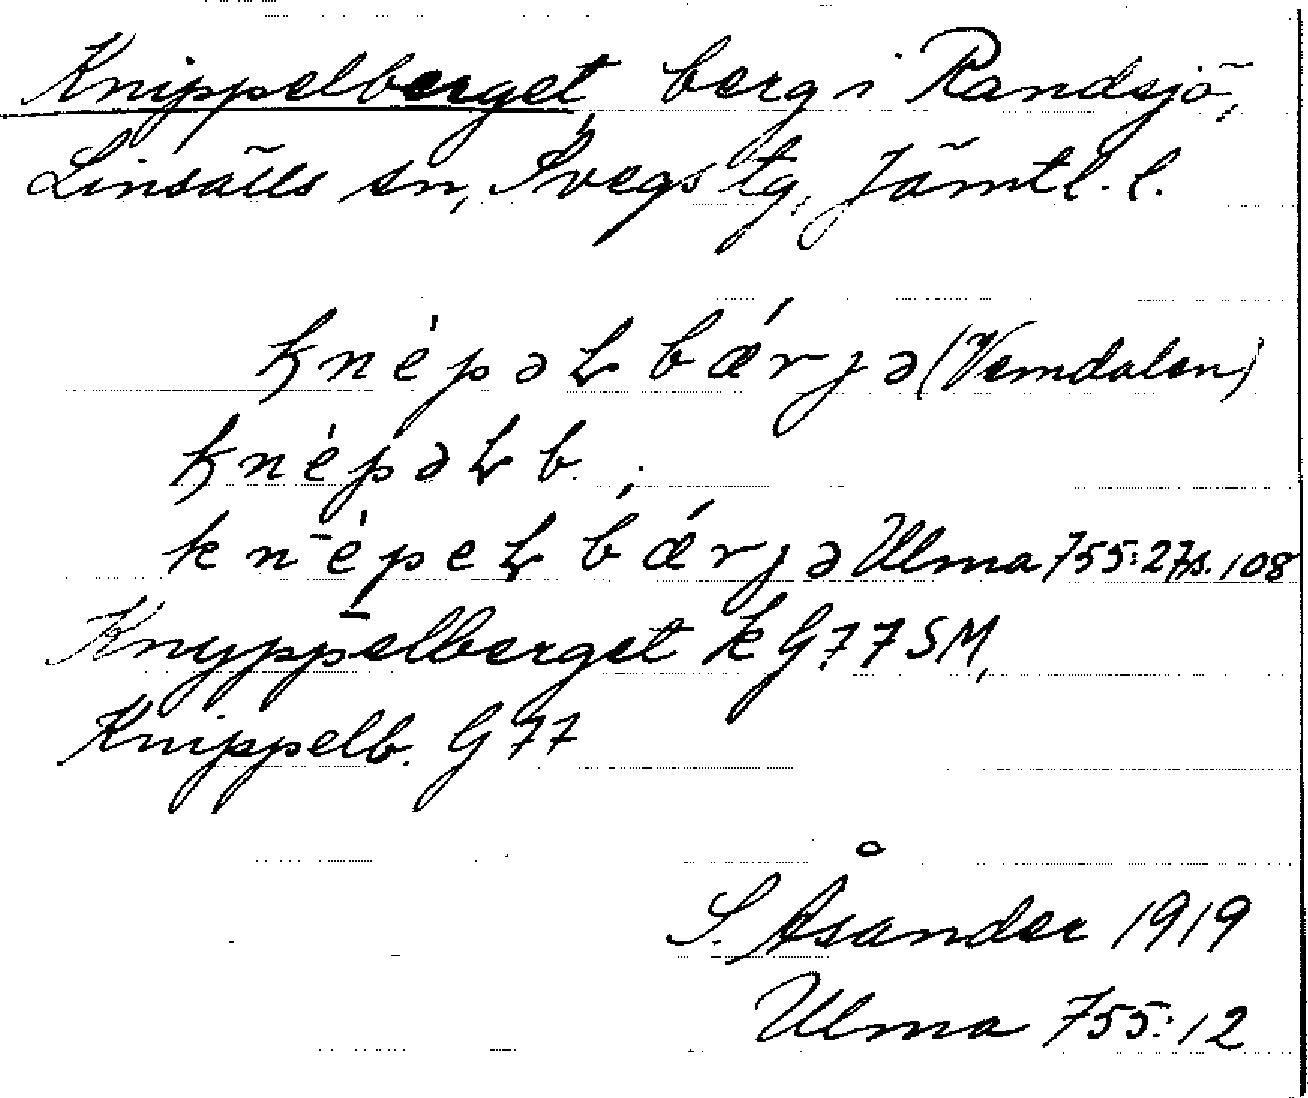 Knippelberget berg i Randsjö,
Linsälls sn, Svegs tg, Jämtl. l.
knépəɫbǽrjə (Vemdalen)
knépəɫb.;
knépeɫbǽrjə Ulma 755:27 s. 108
Knyppelberget k G 77 SM,
Knippelb. G 77
S. Åsander 1919
Ulma 755:12